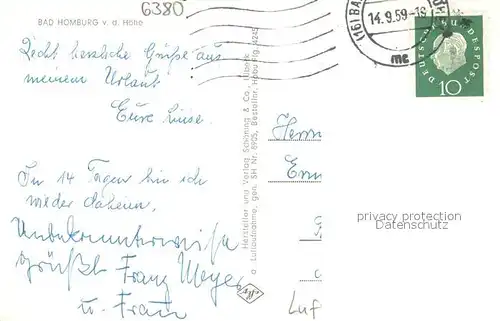 6380
BAD HOMBURG v. d. Höhe
Recht herzliche Grüße aus
meinem Urlaub
Eure Luise.
In 14 Tagen bin ich
wieder daheim.
Unbekannterweise
grüßt Franz Meyer
u. Frau
Hersteller und Verlag Schöning & Co., Lübeck
© Luftaufnahme, gen. SH Nr. 6905, Bestellnr. Hobu Flg. 4245
(16) BA
14.9.59-18
mc
DEUTSCHE BUNDESPOST
10
Herrn
privacy protection
VALUECOM.COM
Luf